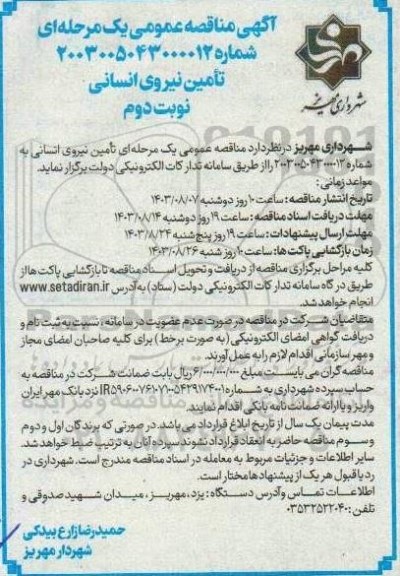 آگهی مناقصه عمومی یک مرحله‌ای
شماره ۲۰۰۳۰۰۵۰۴۳۰۰۰۰۱۲
تأمین نیروی انسانی
نوبت دوم
شهرداری مهریز
شهرداری مهریز در نظر دارد مناقصه عمومی یک مرحله‌ای تأمین نیروی انسانی به
شماره ۲۰۰۳۰۰۵۰۴۳۰۰۰۰۱۲ را از طریق سامانه تدارکات الکترونیکی دولت برگزار نماید.
مواعد زمانی:
تاریخ انتشار مناقصه: ساعت ۱۰ روز دوشنبه ۱۴۰۳/۰۸/۰۷
مهلت دریافت اسناد مناقصه: ساعت ۱۹ روز دوشنبه ۱۴۰۳/۰۸/۱۴
مهلت ارسال پیشنهادات: ساعت ۱۹ روز پنج‌شنبه ۱۴۰۳/۸/۲۴
زمان بازگشایی پاکت‌ها: ساعت ۱۰ روز شنبه ۱۴۰۳/۰۸/۲۶
کلیه مراحل برگزاری مناقصه از دریافت و تحویل اسناد مناقصه تا بازگشایی پاکت‌ها از
طریق درگاه سامانه تدارکات الکترونیکی دولت (ستاد) به آدرس www.setadiran.ir
انجام خواهد شد.
متقاضیان شرکت در مناقصه در صورت عدم عضویت در سامانه، نسبت به ثبت نام و
دریافت گواهی امضای الکترونیکی (به صورت برخط) برای کلیه صاحبان امضای مجاز
و مهر سازمانی اقدام لازم را به عمل آورند.
مناقصه گران می بایست مبلغ ۶/۰۰۰/۰۰۰/۰۰۰ ریال بابت ضمانت شرکت در مناقصه به
حساب سپرده شهرداری به شماره IR۵۹۰۶۰۰۷۶۱۷۱۰۰۵۴۲۹۱۷۴۰۰۱ نزد بانک مهر ایران
واریز و یا ارائه ضمانت نامه بانکی اقدام نمایند.
مدت پیمان یک سال از تاریخ ابلاغ قرارداد می باشد. در صورتی که برندگان اول و دوم
و سوم مناقصه حاضر به انعقاد قرارداد نشوند سپرده آنان به ترتیب ضبط خواهد شد.
سایر اطلاعات و جزئیات مربوط به معامله در اسناد مناقصه مندرج است. شهرداری در
رد یا قبول هر یک از پیشنهادها مختار است.
اطلاعات تماس و آدرس دستگاه: یزد، مهریز، میدان شهید صدوقی و
تلفن: ۰۳۵۳۲۵۲۲۰۴۰
حمیدرضا زارع بیدکی
شهردار مهریز